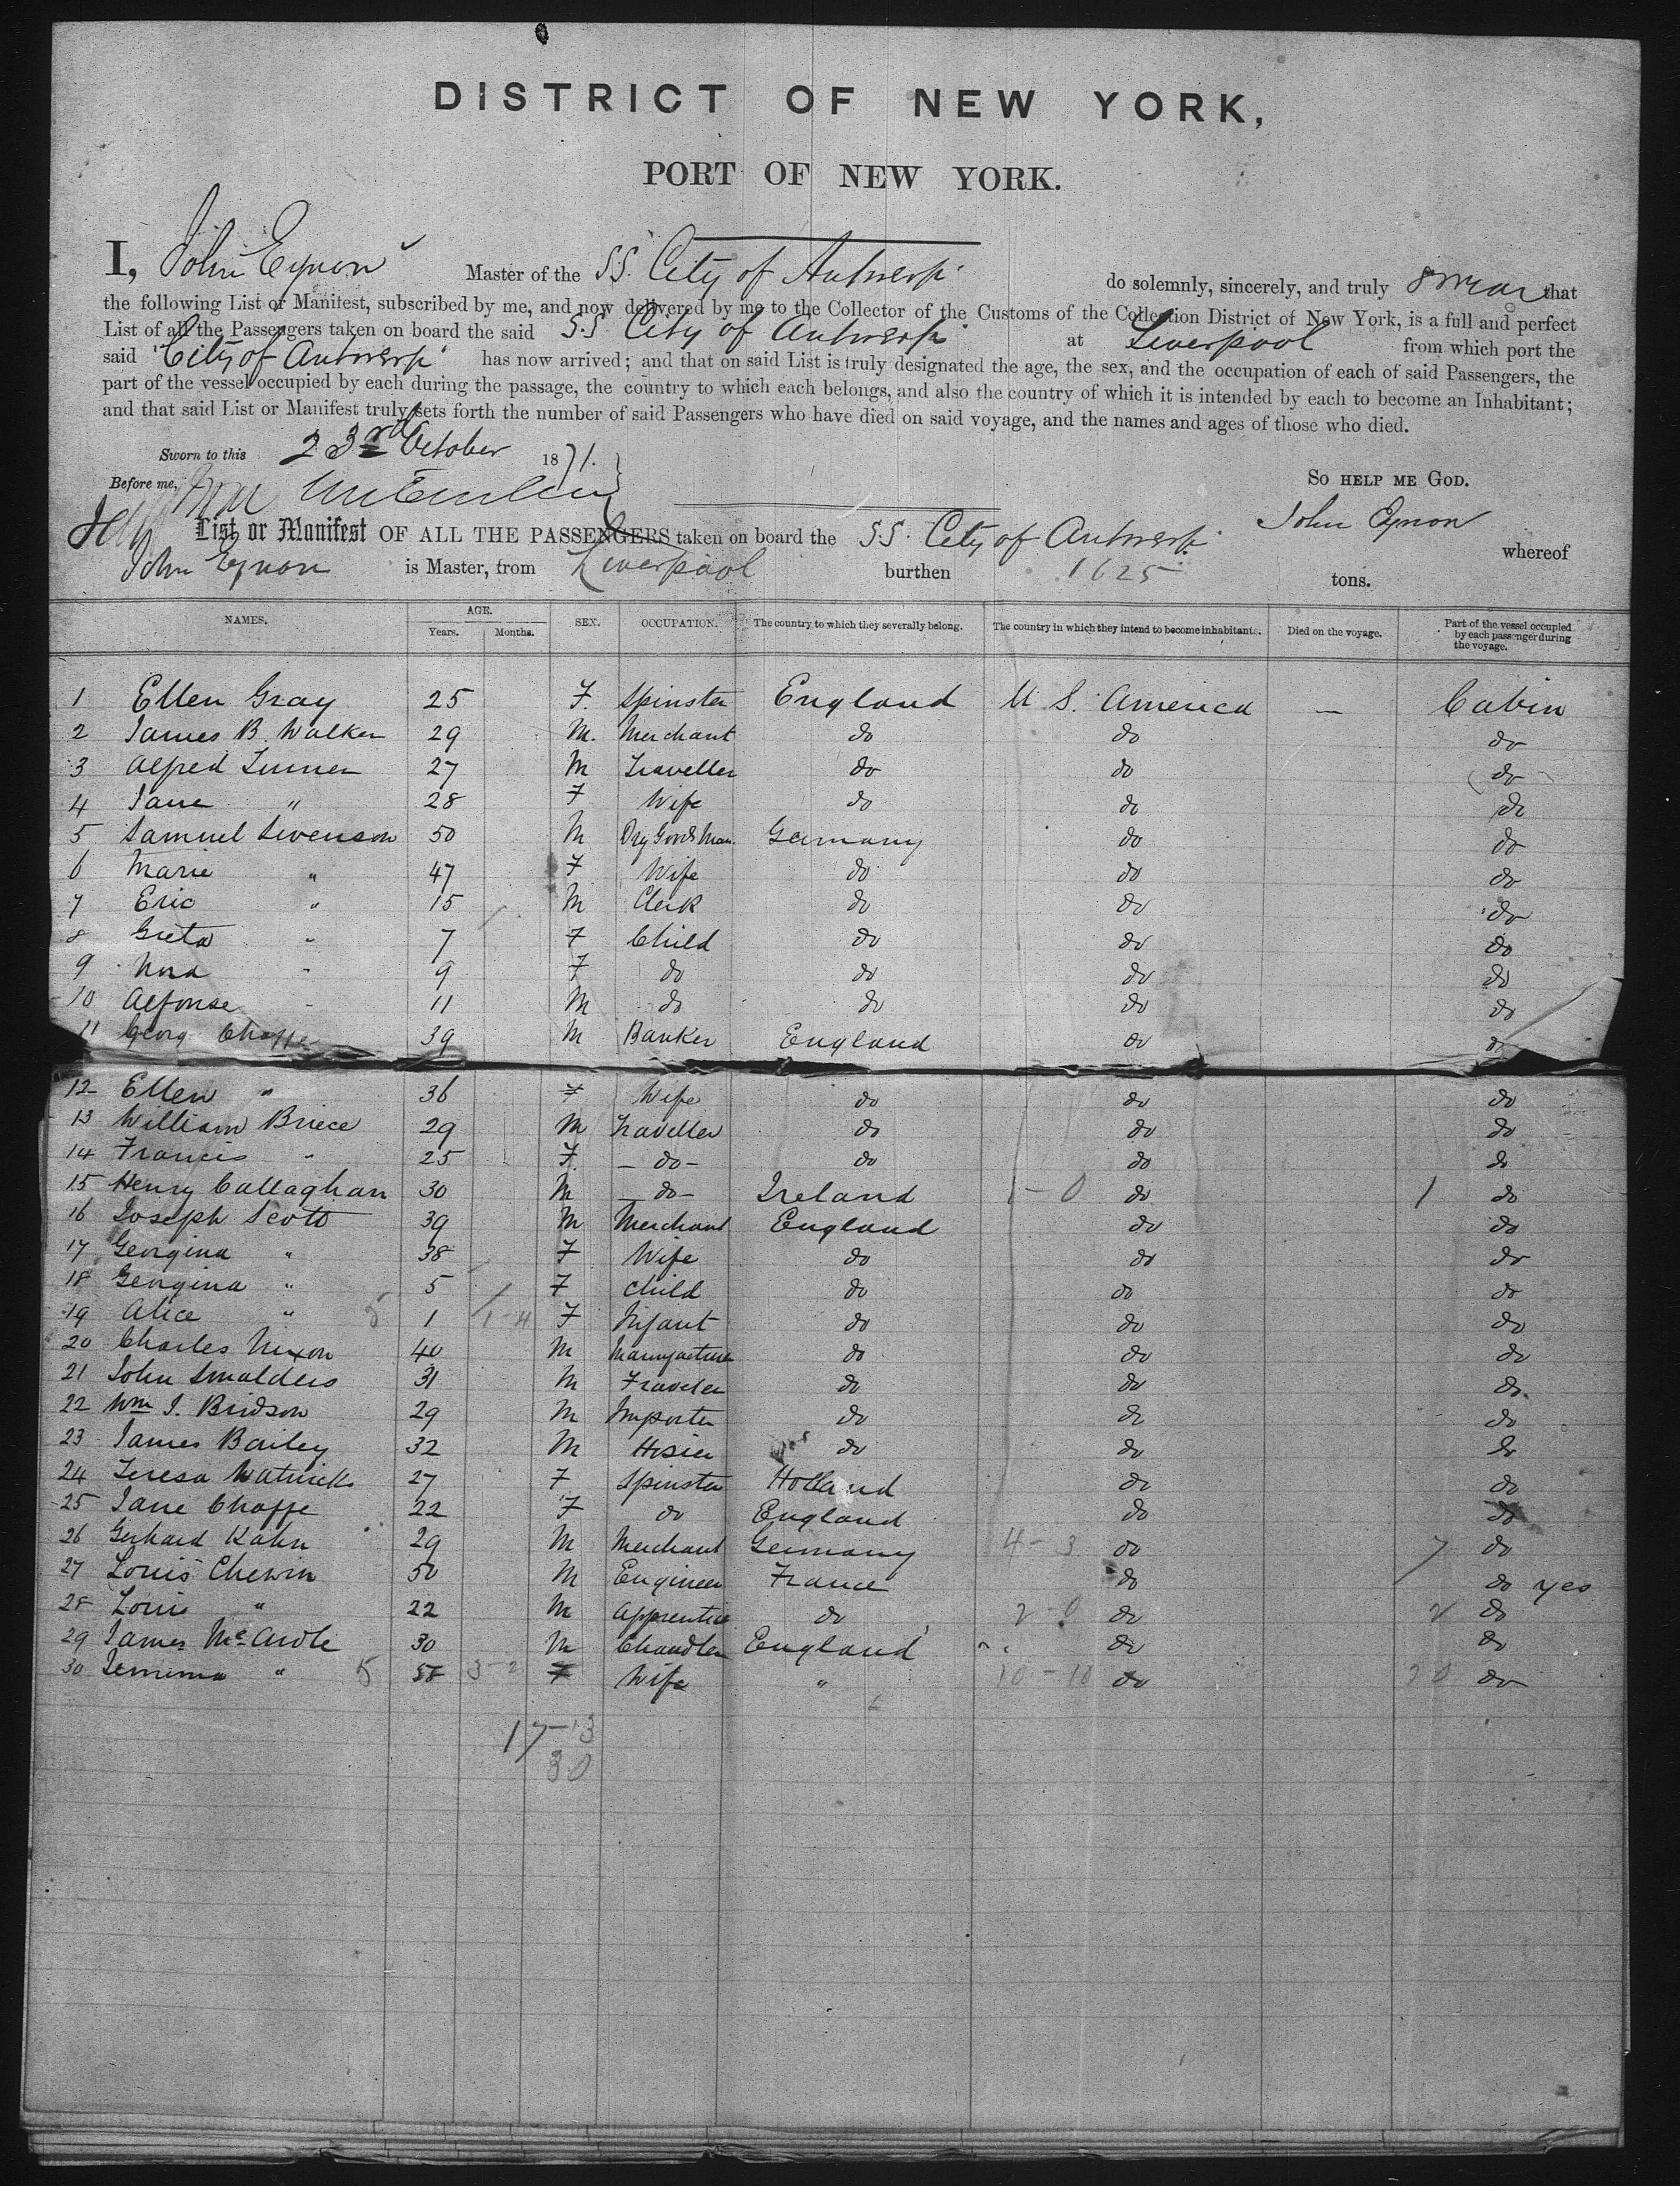 DISTRICT OF NEW YORK,
PORT OF NEW YORK.
I, John Eynon Master of the S.S. City of Antwerp do solemnly, sincerely, and truly swear that
the following List or Manifest, subscribed by me, and now delivered by me to the Collector of the Customs of the Collection District of New York, is a full and perfect
List of all the Passengers taken on board the said S.S City of Antwerp at Liverpool from which port the
said "City of Antwerp" has now arrived; and that on said List is truly designated the age, the sex, and the occupation of each of said Passengers, the
part of the vessel occupied by each during the passage, the country to which each belongs, and also the country of which it is intended by each to become an Inhabitant;
and that said List or Manifest truly sets forth the number of said Passengers who have died on said voyage, and the names and ages of those who died.
Sworn to this 23rd October 1871.
SO HELP ME GOD.
Before me,
John Eynon
List or Manifest OF ALL THE PASSENGERS taken on board the S.S. City of Antwerp whereof
John Eynon is Master, from Liverpool burthen 1625 tons.
NAMES. AGE. Years. Months. SEX. OCCUPATION. The country to which they severally belong. The country in which they intend to become inhabitants. Died on the voyage. Part of the vessel occupied by each passenger during the voyage.
1 Ellen Gray 25 F. Spinster England U S. America — Cabin
2 James B. Walker 29 M. Merchant do do do
3 Alfred Turner 27 M Traveller do do do
4 Jane " 28 F Wife do do do
5 Samuel Swenson 50 M Dry Goods Man. Germany do do
6 Marie " 47 F Wife do do do
7 Eric " 15 M Clerk do do do
8 Greta " 7 F Child do do do
9 Nora " 9 F do do do do
10 Alfonse " 11 M do do do do
11 Georg Chaffe 39 M Banker England do do
12 Ellen " 36 F Wife do do do
13 William Briece 29 M Traveller do do do
14 Francis " 25 F. – do – do do do
15 Henry Callaghan 30 M – do – Ireland 1 – 0 do 1 do
16 Joseph Scott 39 M Merchant England do do
17 Georgina " 38 F Wife do do do
18 Georgina " 5 F Child do do do
19 Alice " 5 1 1-4 F Infant do do do
20 Charles Nixon 40 M Manufacturer do do do
21 John Smalders 31 M Traveler do do do.
22 Wm J. Bridson 29 M Importer do do do
23 James Bailey 32 M Hosier do do do
24 Teresa 27 F Spinster Holland do do
25 Jane Chaffe 22 F do England do do
26 Gerhard Kahn 29 M Merchant Germany 4 – 3 do 7 do
27 Louis Chewin 50 M Engineer France do do yes
28 Louis " 22 M Apprentice do 2 – 0 do 2 do
29 James McArdle 30 M Chandler England do do
30 Jemima " 5 58 3-2 F Wife " 10 – 10 do 20 do
17–13
30